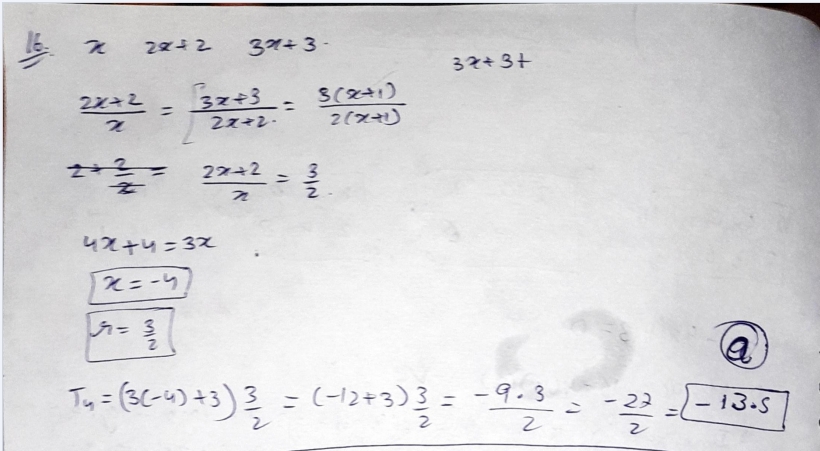 16. x 2x+2 3x+3.
3x+3+
2x+2/x = 3x+3/2x+2. = 3(x+1)/2(x+1)
2+2/x = 2x+2/x = 3/2.
4x+4=3x
x=-4
r=3/2
a
T4=(3(-4)+3)3/2 = (-12+3)3/2 = -9.3/2 = -27/2 = -13.5